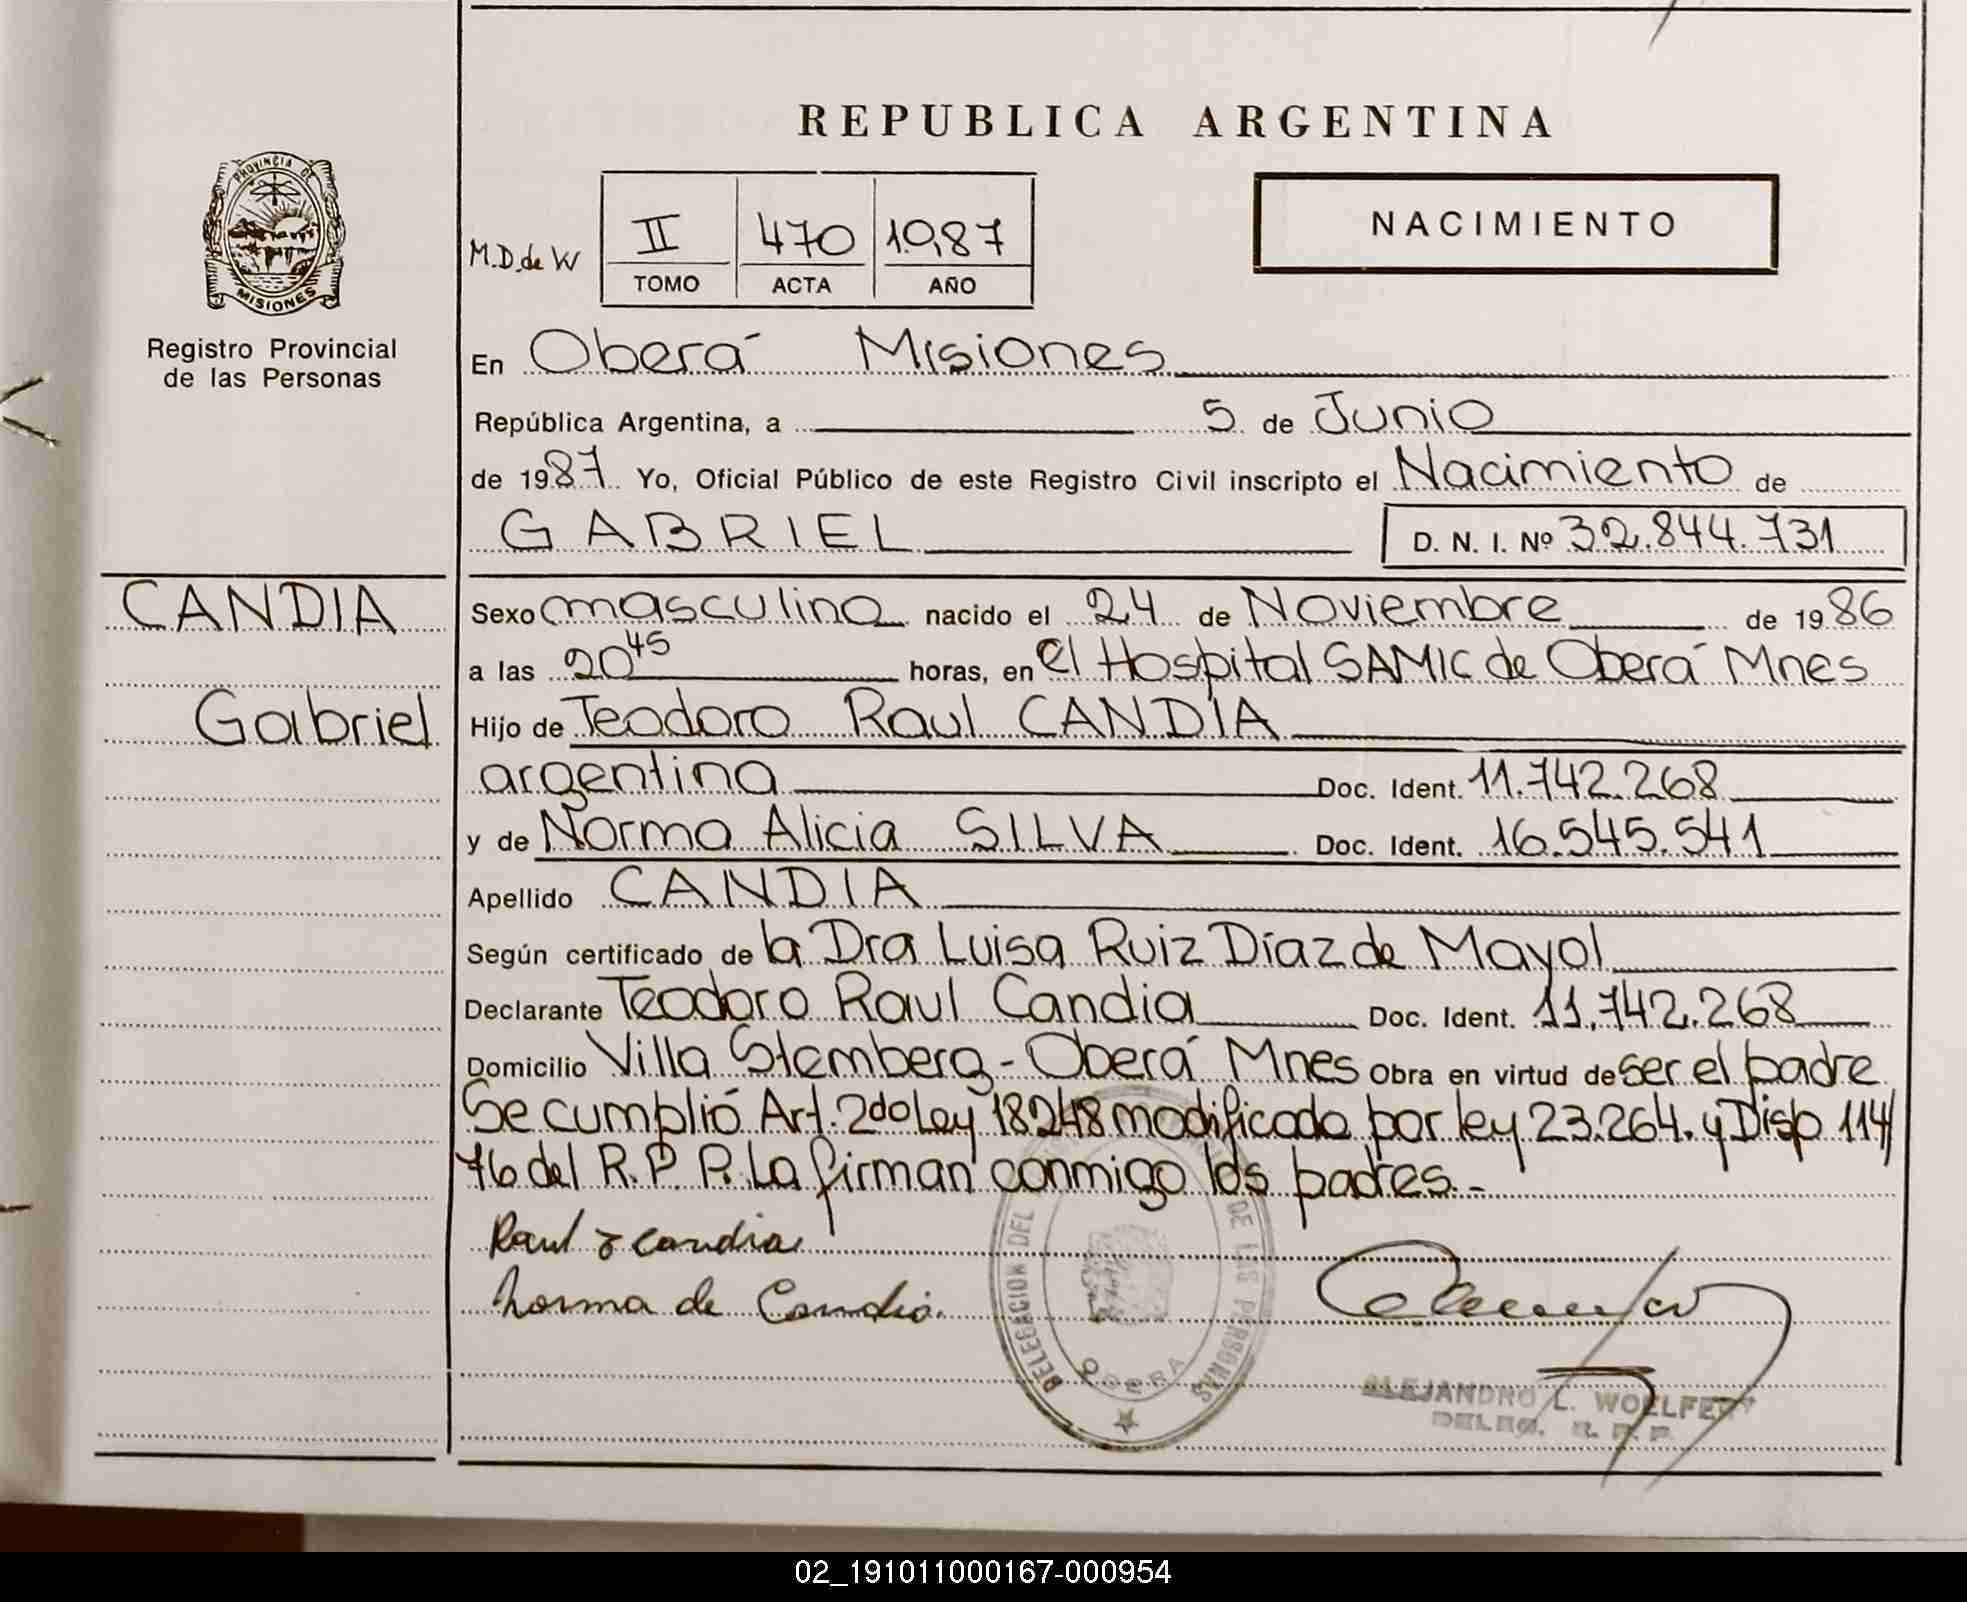 REPUBLICA ARGENTINA
PROVINCIA DE
MISIONES
Registro Provincial
de las Personas
M.D. de W
II 470 1987
TOMO ACTA AÑO
NACIMIENTO
En Oberá Misiones
República Argentina, a 5 de Junio
de 1987 Yo, Oficial Público de este Registro Civil inscripto el Nacimiento de
GABRIEL D. N. I. Nº 32.844.731
CANDIA
Gabriel
Sexo masculino nacido el 24 de Noviembre de 1986
a las 20 45 horas, en el Hospital SAMIC de Oberá Mnes
Hijo de Teodoro Raul CANDIA
argentina Doc. Ident. 11.742.268
y de Norma Alicia SILVA Doc. Ident. 16.545.541
Apellido CANDIA
Según certificado de la Dra Luisa Ruiz Díaz de Mayol
Declarante Teodoro Raul Candia Doc. Ident. 11.742.268
Domicilio Villa Stemberg - Oberá Mnes Obra en virtud de ser el padre
Se cumplió Art. 2do Ley 18248 modificado por ley 23.264. y Disp 114/
76 del R. P. P. La firman conmigo los padres.-
Raul T candia
Norma de Candia.
DELEGACION DEL DE LAS PERSONAS
OBERA
ALEJANDRO L. WOELFERT
DELEG. R. P. P.
02_191011000167-000954